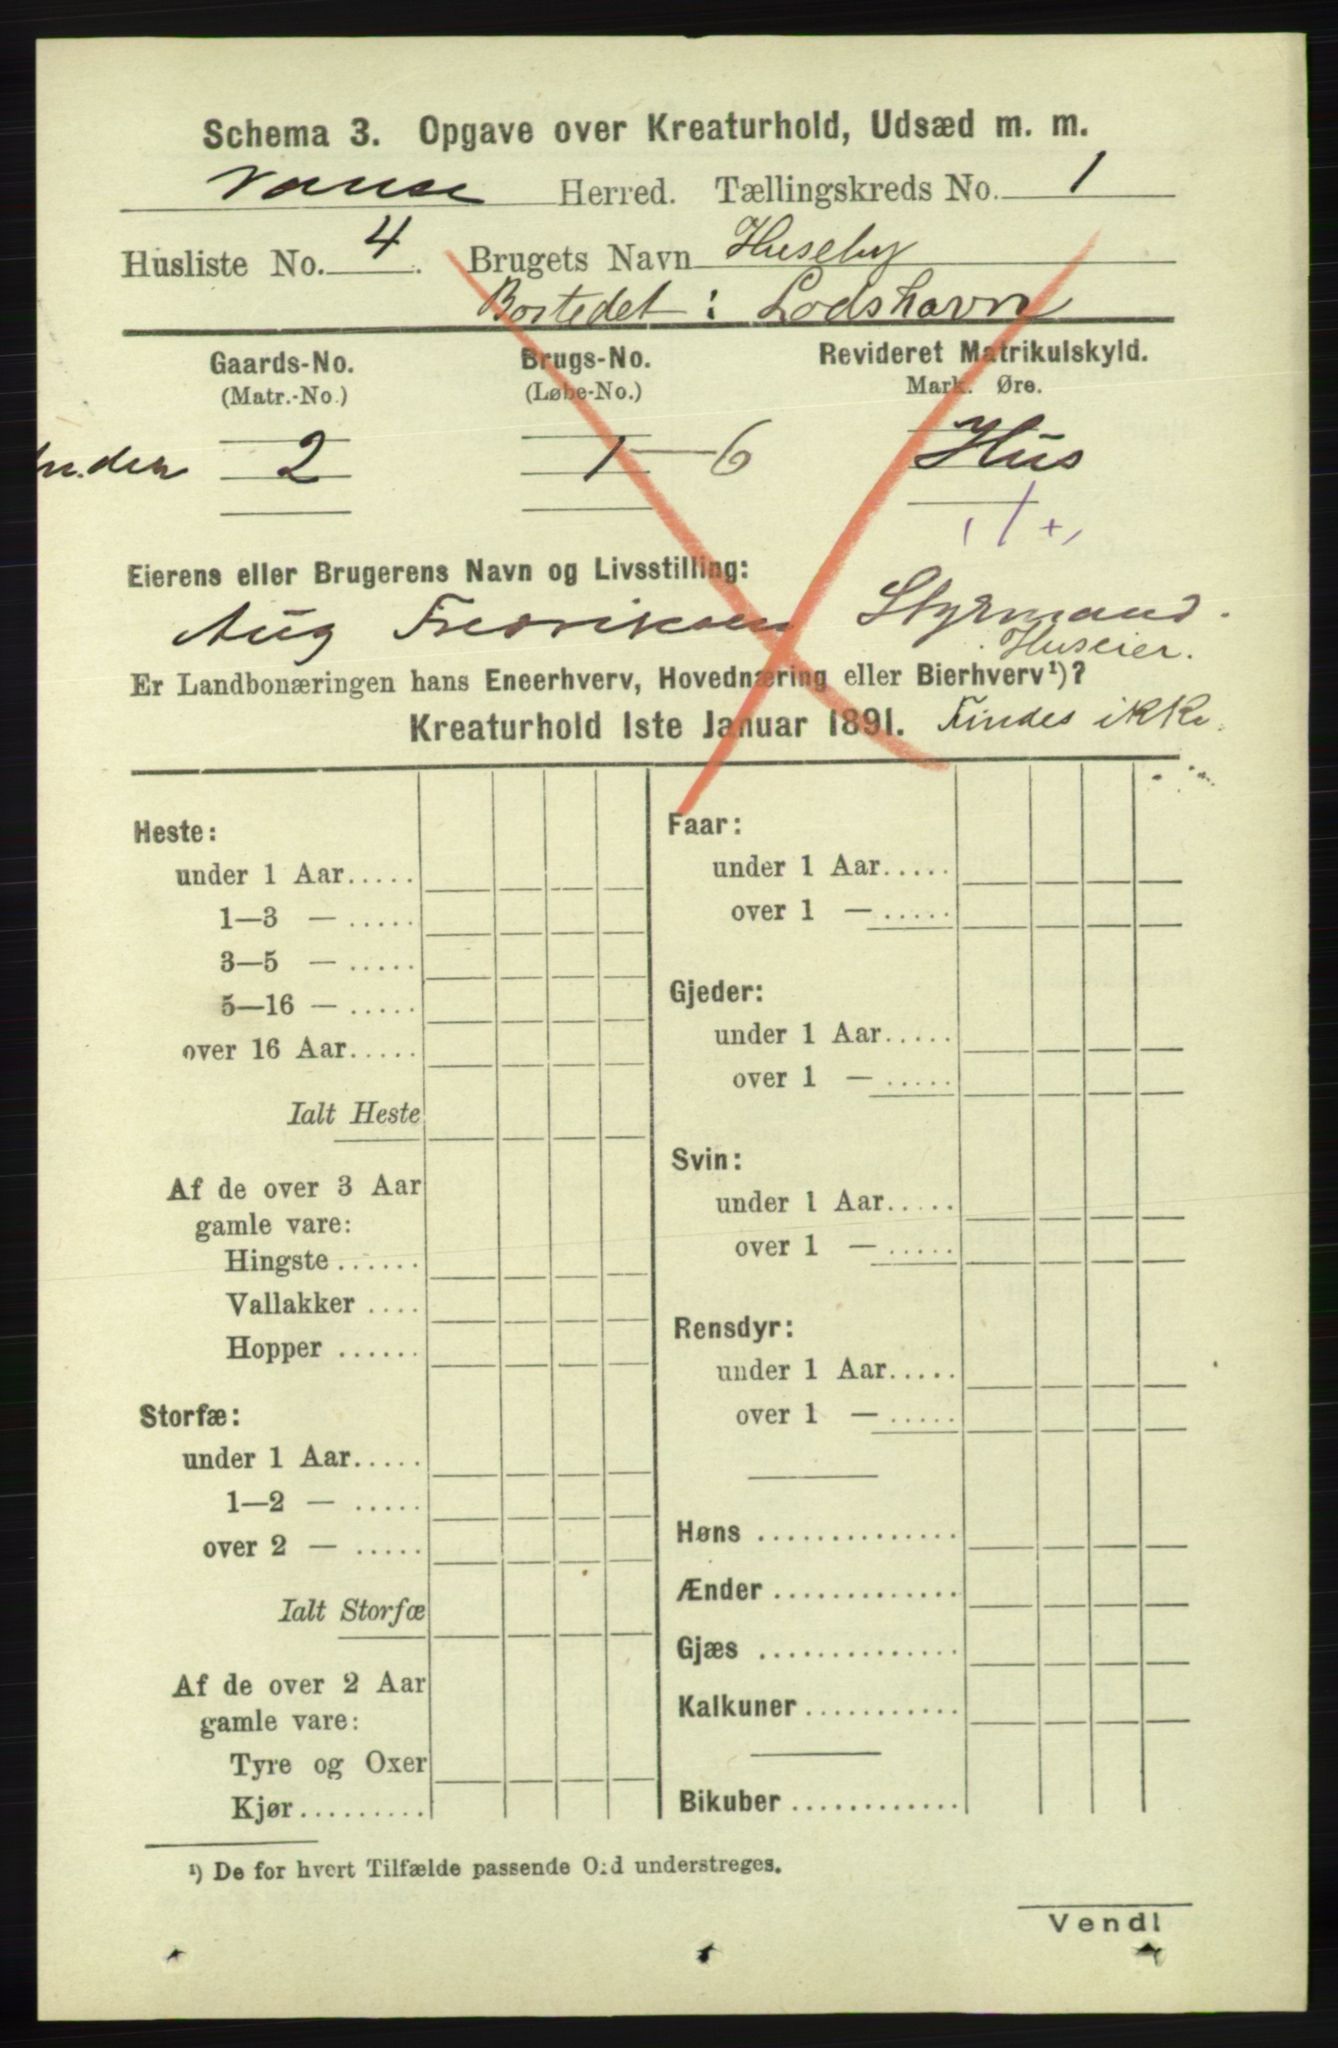 Schema 3. Opgave over Kreaturhold, Udsæd m. m.
Vanse Herred. Tællingskreds No. 1
Husliste No. 4. Brugets Navn Huseby
Bostedet: Lodshavn
Gaards-No. Brugs-No. Revideret Matrikulskyld.
(Matr.-No.) (Løbe-No.) Mark. Øre.
under 2 1 — 6 Hus
Eierens eller Brugerens Navn og Livsstilling:
Aug Fredriksen Styrmand.
Huseier.
Er Landbonæringen hans Eneerhverv, Hovednæring eller Bierhverv¹)?
Kreaturhold 1ste Januar 1891. Findes ikke.
Heste:
under 1 Aar.....
1—3 — .....
3—5 — .....
5—16 — .....
over 16 Aar.....
Ialt Heste
Af de over 3 Aar
gamle vare:
Hingste ......
Vallakker ....
Hopper ......
Storfæ:
under 1 Aar.....
1—2 — .....
over 2 — .....
Ialt Storfæ
Af de over 2 Aar
gamle vare:
Tyre og Oxer
Kjør.........
Faar:
under 1 Aar.....
over 1 — .....
Gjeder:
under 1 Aar.....
over 1 — .....
Svin:
under 1 Aar.....
over 1 — .....
Rensdyr:
under 1 Aar.....
over 1 — .....
Høns ..............
Ænder .............
Gjæs ..............
Kalkuner ...........
Bikuber ............
¹) De for hvert Tilfælde passende Ord understreges.
Vend!